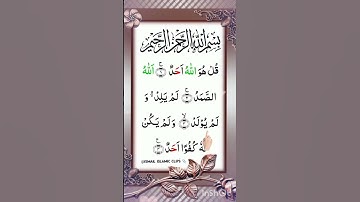 بِسْمِ اللهِ الرَّحْمٰنِ الرَّحِيْمِ
قُلْ هُوَ اللهُ اَحَدٌ ۝١ اَللهُ
الصَّمَدُ ۝٢ لَمْ يَلِدْ ۙ وَ
لَمْ يُوْلَدْ ۝٣ وَلَمْ يَكُنْ
لَّهٗ كُفُوًا اَحَدٌ ۝٤
ISMAIL ISLAMIC CLIPS
InShO